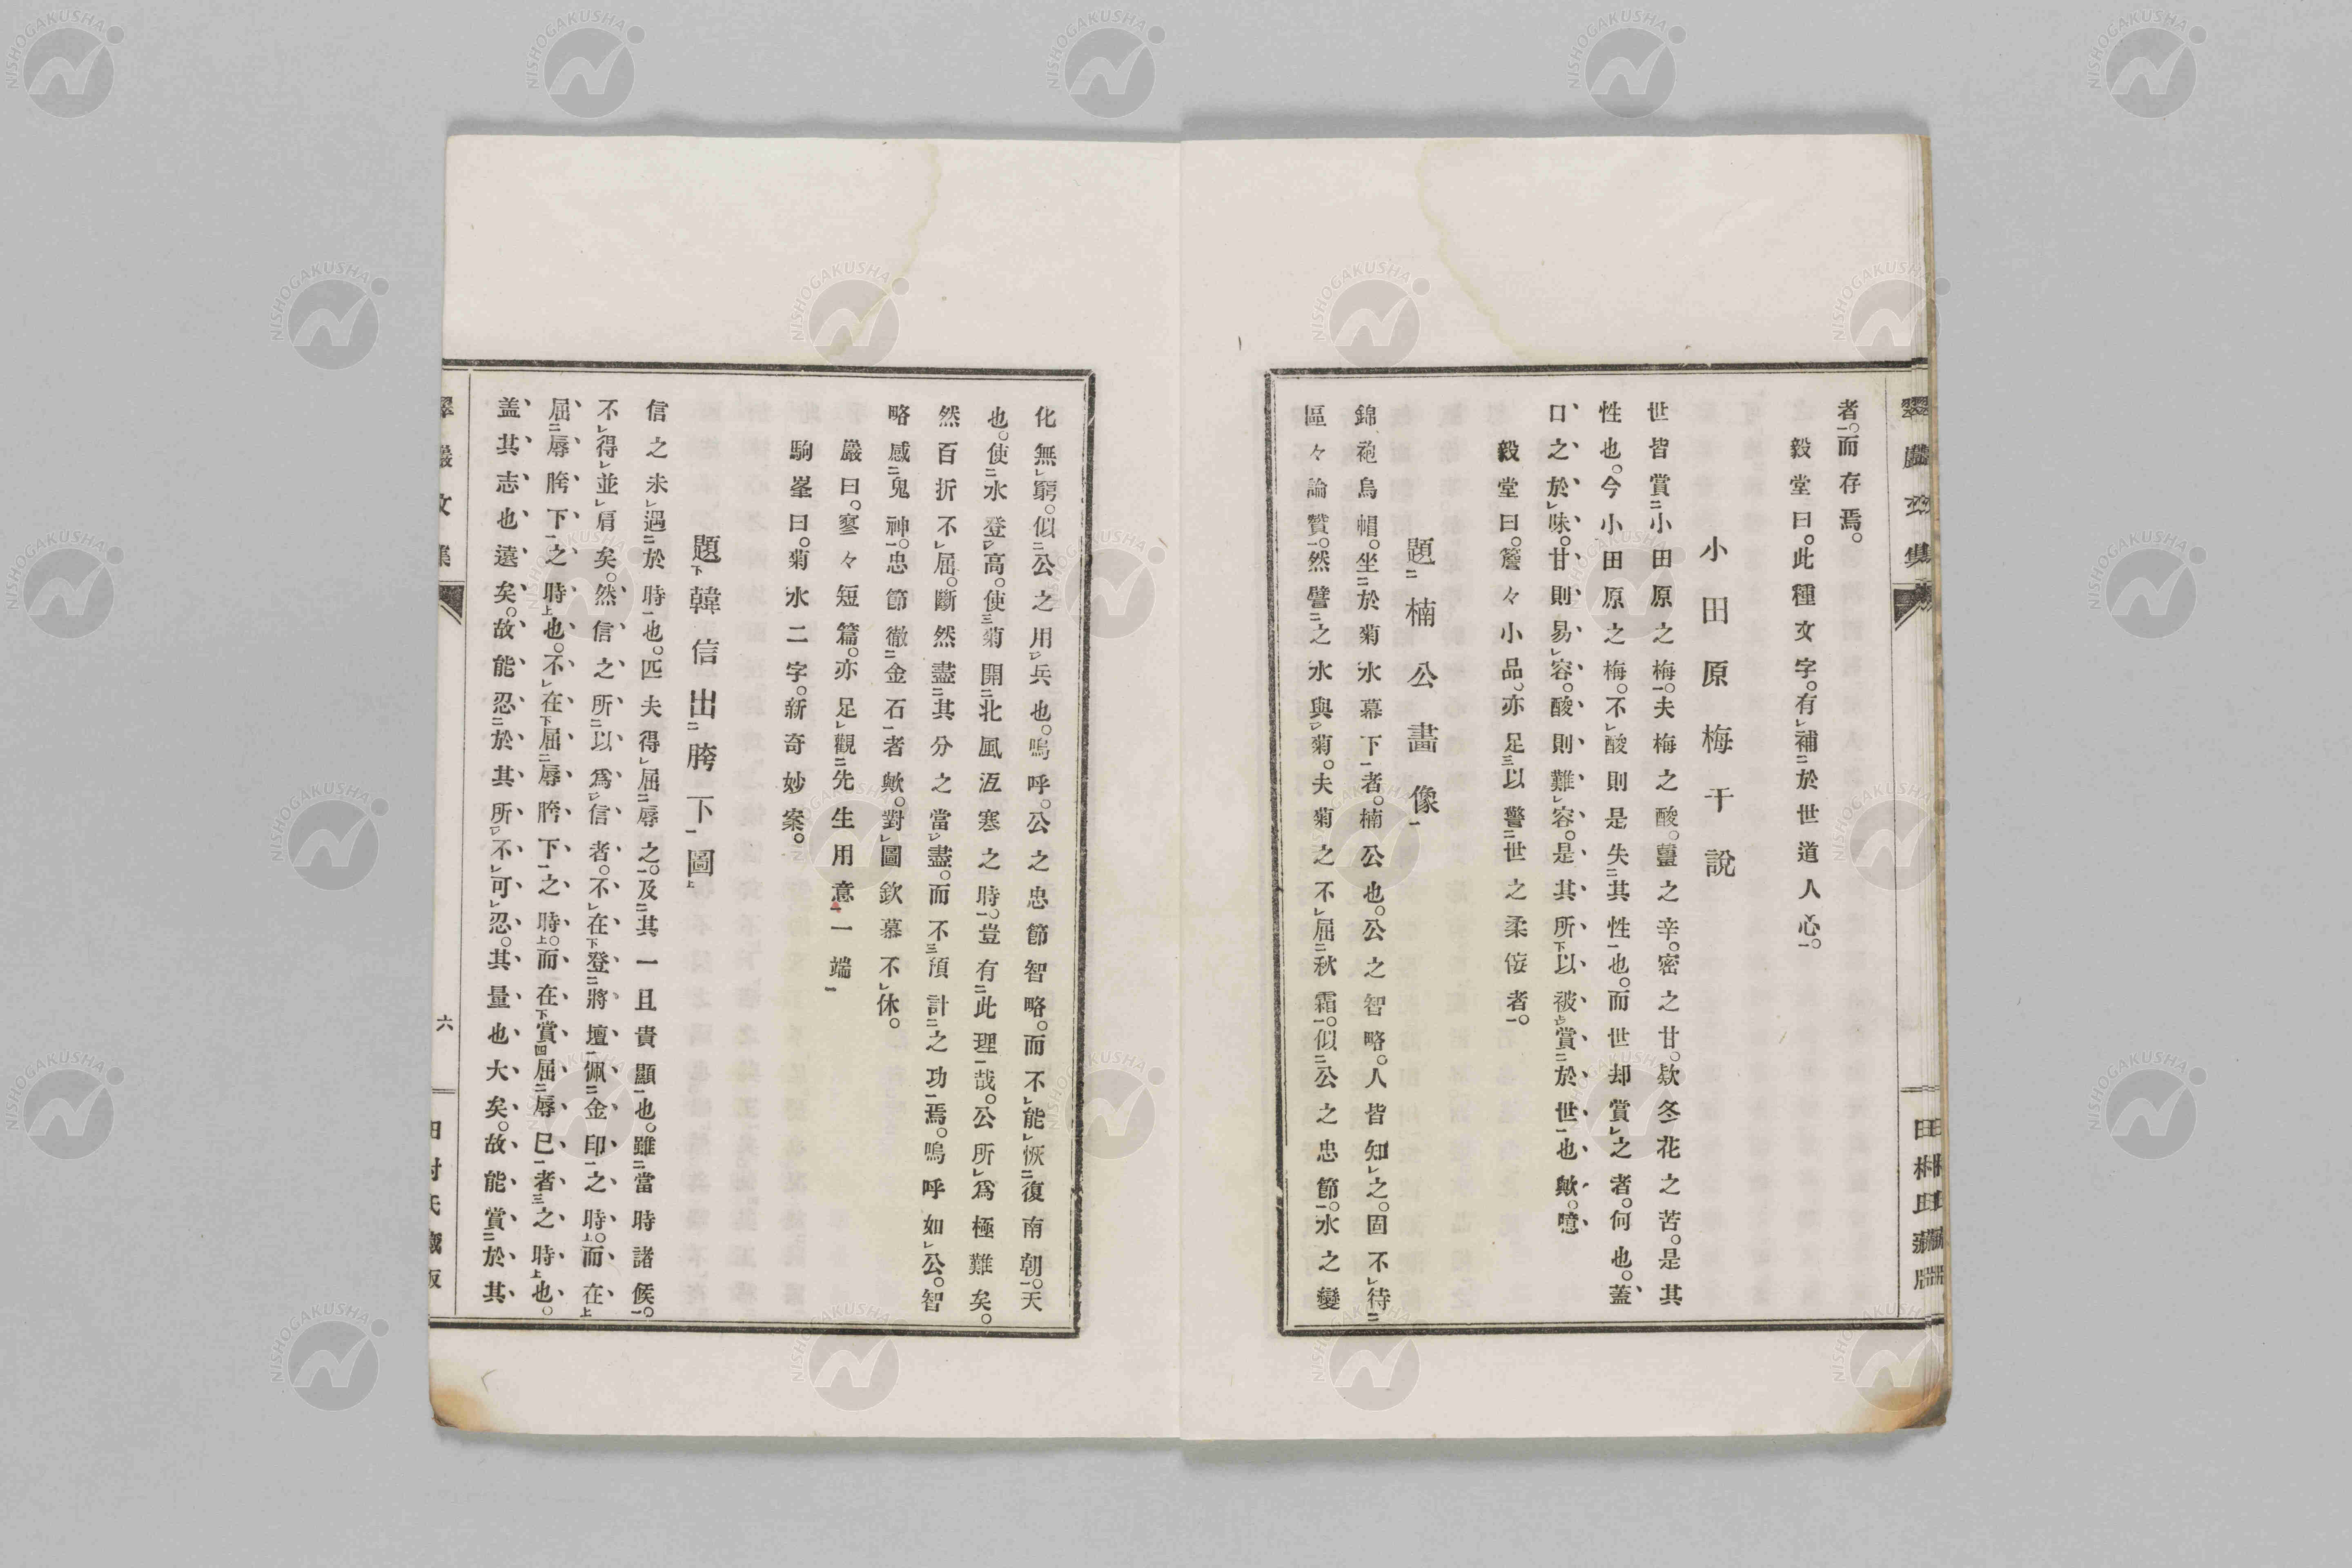 者。而存焉。
毅堂曰。此種文字。有補於世道人心。
小田原梅干說
世皆賞小田原之梅。夫梅之酸。薑之辛。密之甘。欵冬花之苦。是其
性也。今小田原之梅。不酸則是失其性也。而世却賞之者。何也。蓋
口之於味。甘則易容。酸則難容。是其所以被賞於世也歟。噫
毅堂曰。簷々小品。亦足以警世之柔侫者。
題楠公畫像
錦袍烏帽。坐於菊水幕下者。楠公也。公之智略。人皆知之。固不待
區々論贊。然譬之水與菊。夫菊之不屈秋霜。似公之忠節。水之變
化無窮。似公之用兵也。嗚呼。公之忠節智略。而不能恢復南朝。天
也。使水登高。使菊開北風沍寒之時。豈有此理哉。公所爲極難矣。
然百折不屈。斷然盡其分之當盡。而不預計之功焉。嗚呼如公。智
略感鬼神。忠節徹金石者歟。對圖欽慕不休。
巖曰。寥々短篇。亦足觀先生用意一端
駒峯曰。菊水二字。新奇妙案。
題韓信出胯下圖
信之未遇於時也。匹夫得屈辱之。及其一旦貴顯也。雖當時諸候。
不得並肩矣。然信之所以爲信者。不在登將壇佩金印之時。而在
屈辱胯下之時也。不在屈辱胯下之時。而在賞屈辱已者之時也。
盖其志也遠矣。故能忍於其所不可忍。其量也大矣。故能賞於其
六
NISHOGAKUSHA